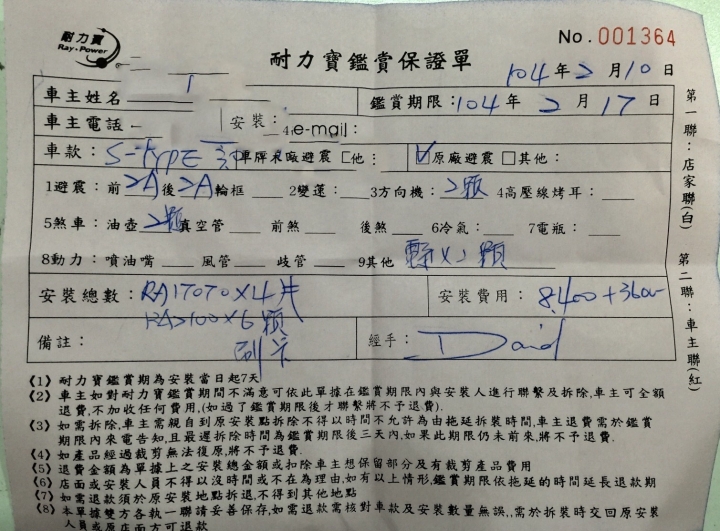 耐力寶
Ray·Power
No. 001364
耐力寶鑑賞保證單
104年2月10日
車主姓名
鑑賞期限:104年2月17日
車主電話
安裝:
e-mail:
車款:S-type
原廠避震 □其他:
1避震:前2A後2A輪框 2變速: 3方向機:2顆 4高壓線烤耳:
5煞車:油壺2顆真空管 前煞 後煞 6冷氣: 7電瓶:
8動力:噴油嘴 風管 歧管 9其他 x2顆
安裝總數:RA17070x4片
RA2100x6顆
刷卡
安裝費用:8400+3600
備註:
經手:David
《1》耐力寶鑑賞期為安裝當日起7天
《2》車主如對耐力寶鑑賞期間不滿意可依此單據在鑑賞期限內與安裝人進行聯繫及拆除,車主可全額
退費,不加收任何費用,(如過了鑑賞期限後才聯繫將不予退費).
《3》如需拆除,車主需親自到原安裝點拆除不得以時間不允許為由拖延拆裝時間,車主退費需於鑑賞
期限內來電告知,且最遲拆除時間為鑑賞期限後三天內,如果此期限仍未前來,將不予退費.
《4》如產品經過裁剪無法復原,將不予退費.
《5》退費金額為單據上之安裝總金額或扣除車主想保留部分及有裁剪產品費用
《6》店面或安裝人員不得以沒時間或不在為理由,如有以上情形,鑑賞期限依拖延的時間延長退款期
《7》如需退款須於原安裝地點拆退,不得到其他地點
《8》本單據雙方各執一聯請妥善保存,如需退款需核對車款及安裝數量無誤,,需於拆裝時交回原安裝
人員或原店面方可退款
第一聯:店家聯(白)
第二聯:車主聯(紅)